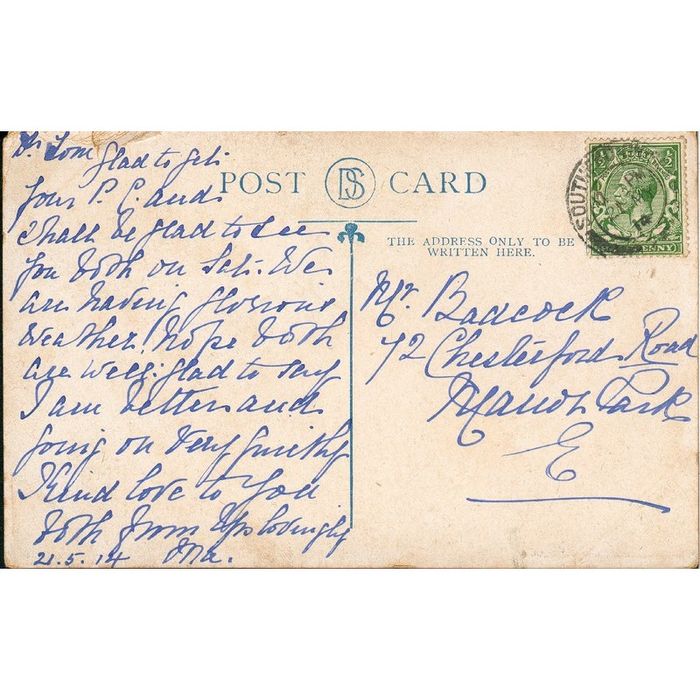 Dr Tom
Glad to get
your P.C. and
shall be glad to see
you both on Sat. We
are having glorious
weather, hope both
are well: glad to say
I am better and
going on very quietly
Kind love to you
both from Yrs lovingly
21.5.14 Ma.
POST DS CARD
THE ADDRESS ONLY TO BE
WRITTEN HERE.
Mr. Badcock
72 Chesterford Road
Manor Park
E